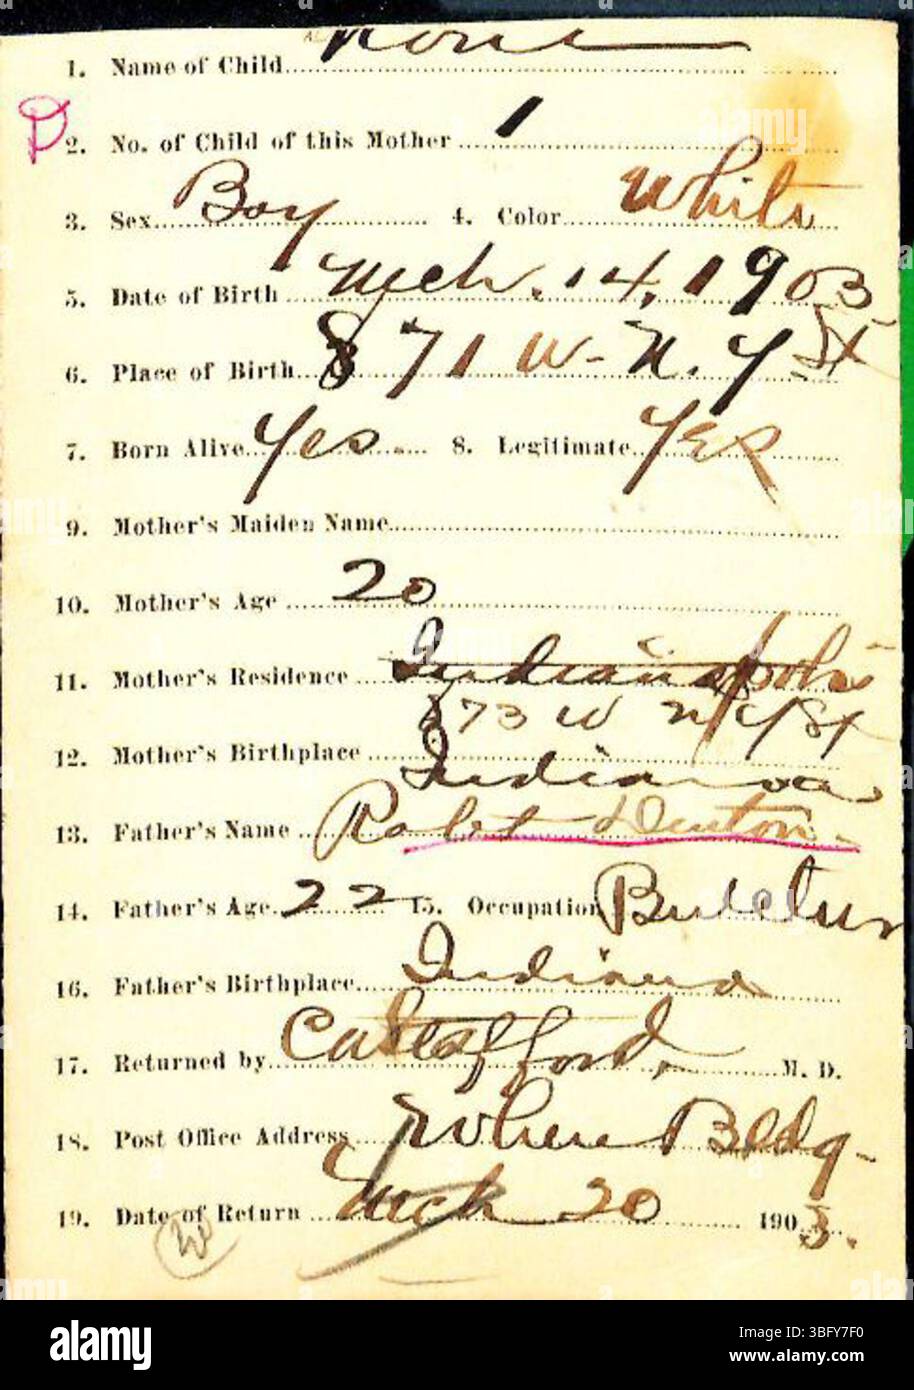 1. Name of Child None
D
2. No. of Child of this Mother 1
3. Sex Boy 4. Color White
5. Date of Birth Mch. 14, 1903
6. Place of Birth 871 W. N. Y. St
7. Born Alive Yes. 8. Legitimate Yes
9. Mother's Maiden Name
10. Mother's Age 20
11. Mother's Residence Indianapolis
873 W N Y St
12. Mother's Birthplace Indiana
13. Father's Name Robt Denton
14. Father's Age 22 15. Occupation
16. Father's Birthplace Indiana
17. Returned by Stafford, M. D.
18. Post Office Address Bldg.
19. Date of Return Mch 20 1903.
alamy
Image ID: 3BFY7F0
www.alamy.com